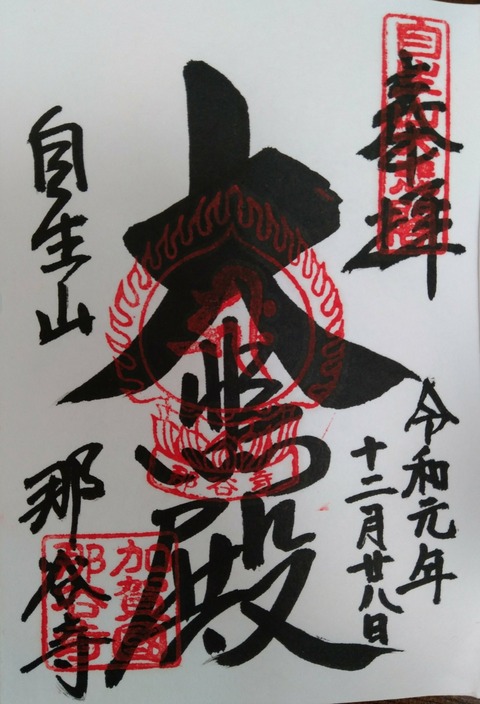 奉拝
令和元年
十二月廿八日
大悲殿
那谷寺
自生山
那谷寺
加賀國
那谷寺